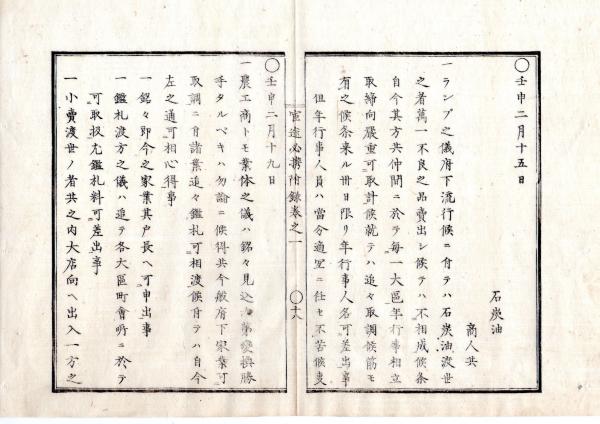 〇壬申二月十五日
石炭油
商人共
一ランプ之儀府下流行候ニ付テハ石炭油渡世
之者萬一不良之品賣出シ候テハ不相成候条
自今其方共仲間ニ於テ毎一大區年行事相立
取締向嚴重可取計候就テハ追々取調候筋モ
有之候条来ル卅日限リ年行事人名可差出事
但年行事人員ハ當分適宜ニ任セ不苦候事
官途必携附録巻之一
〇十八
〇壬申二月十九日
一農工商トモ業体之儀ハ銘々見込次第變換勝
手タルベキハ勿論ニ候得共今般府下家業可
取調ニ付諸業追々鑑札可相渡候付テハ自今
左之通可相心得事
一銘々即今之家業其戸長ヘ可申出事
一鑑札渡方之儀ハ追テ各大區町會所ニ於テ
可取扱尤鑑札料可差出事
一小賣渡世ノ者共之内大店向ヘ出入一方之